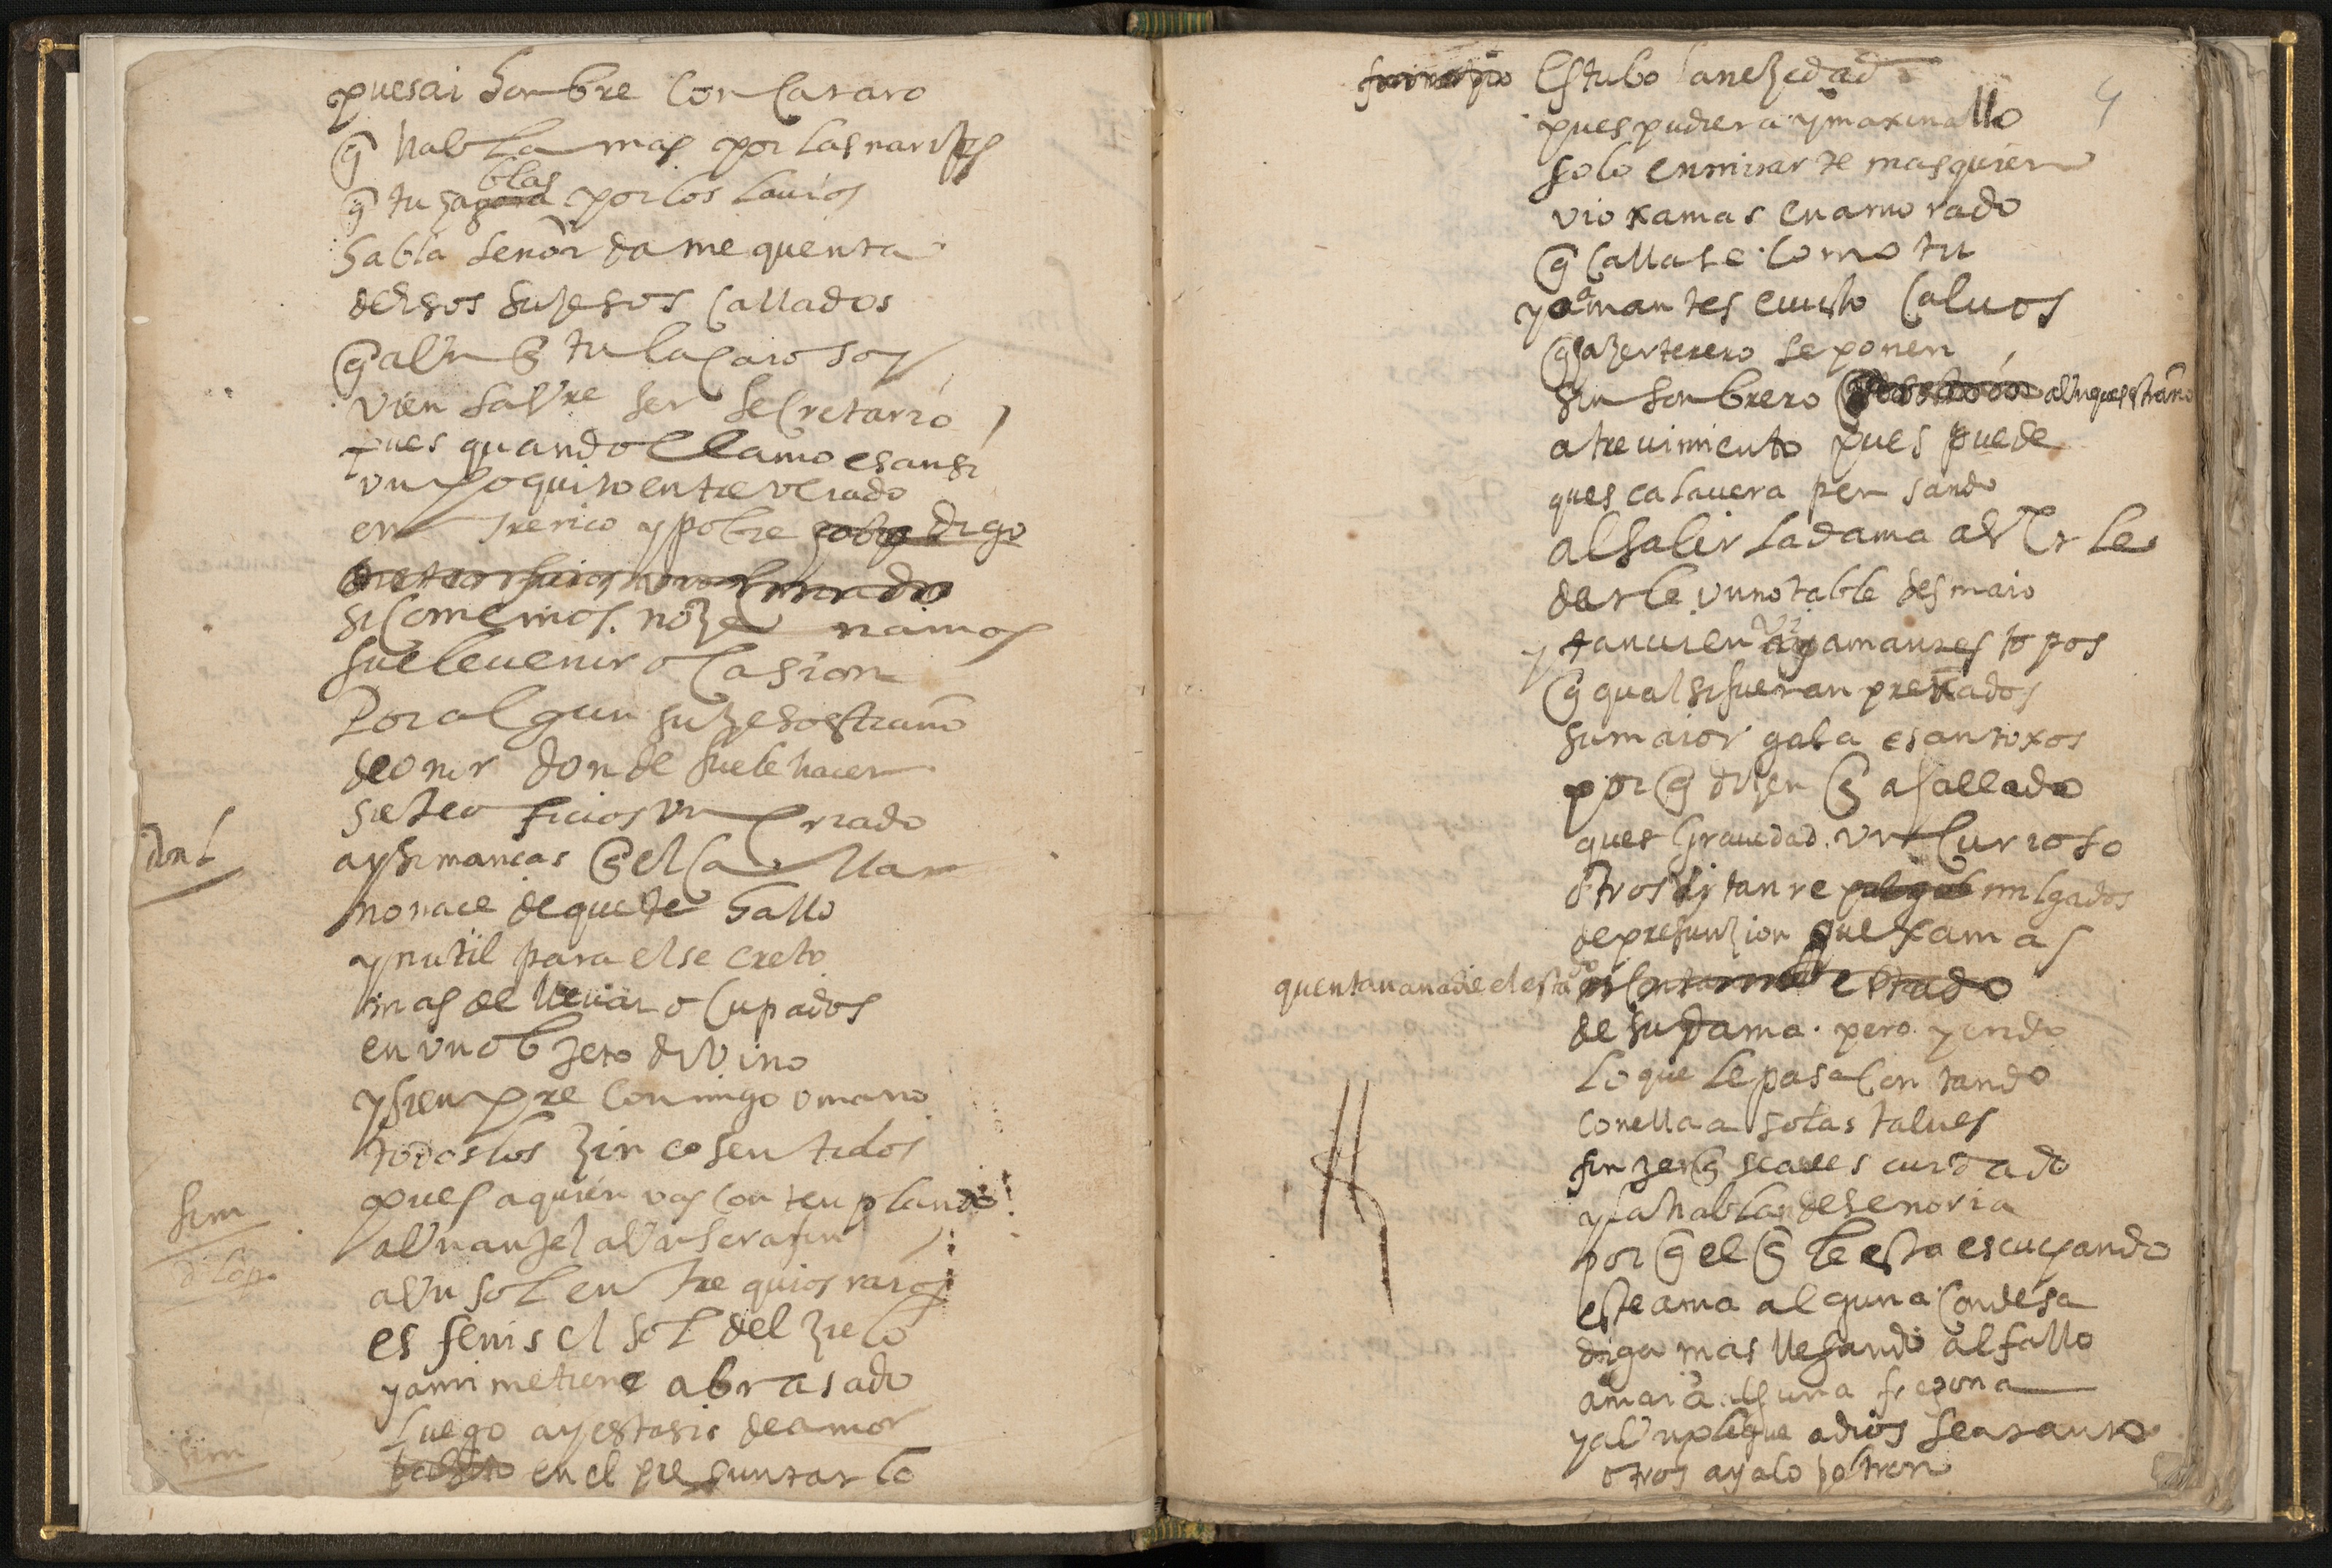 pues ai honbre con catarro
q̃ habla mas por las narizes
q̃ tu hablas por los lauios
habla señor dame quenta
desos suzesos callados
q̃ aun q̃ tu lacaio soy
vien sabre ser secretario
pues quando llamo es ansi
vn poquito entreverado
entre rico y pobre digo
si comemos no zenamos
suele venir ocasion
Por algun suzeso estraño
de onor donde suele hacer
siete oficios vn criado
ant
ay simancas q̃ el callar
no nace de que te hallo
ynutil para el secreto
mas de lleuar ocupados
en vn objeto divino
y sienpre conmigo vmano
todos los zinco sentidos
sim
pues a quien vas contenplando
a vn anjel a vn serafin
d lop.
a vn sol entre quios raios
es fenis el sol del zielo
y a mi me tiene abrasado
luego ay estasis de amor
sim
en el preguntarlo
4
Estubo la nezedad
pues pudiera ymaxinallo
solo en mirarte mas quien
vio xamas enamorado
q̃ callase como tu
yo amantes e uisto caluos
q̃ hazer terero se ponen
sin sonbrero aunques estraño
atreuimiento pues puede
ques calauera pensando
al salir la dama a verle
darle vn notable desmaio
y tanuien ay amantes topos
q̃ qual si fueran preñados
su maior gala es antoxos
por q̃ dizen q̃ a hallado
ques grauedad vn curioso
otros ay tan remilgados
de presunzion que xamas
quentan a nadie el estado
de su dama pero yendo
lo que le pasa contando
con ella a solas talues
finzen q̃ se aues cuidado
y la hablan de señoria
por q̃ el q̃ le esta escuchando
este ama alguna condesa
diga mas llegando al fallo
amara alguna fregona
y a vn plegue a dios sea tanto
otros ay a lo patron